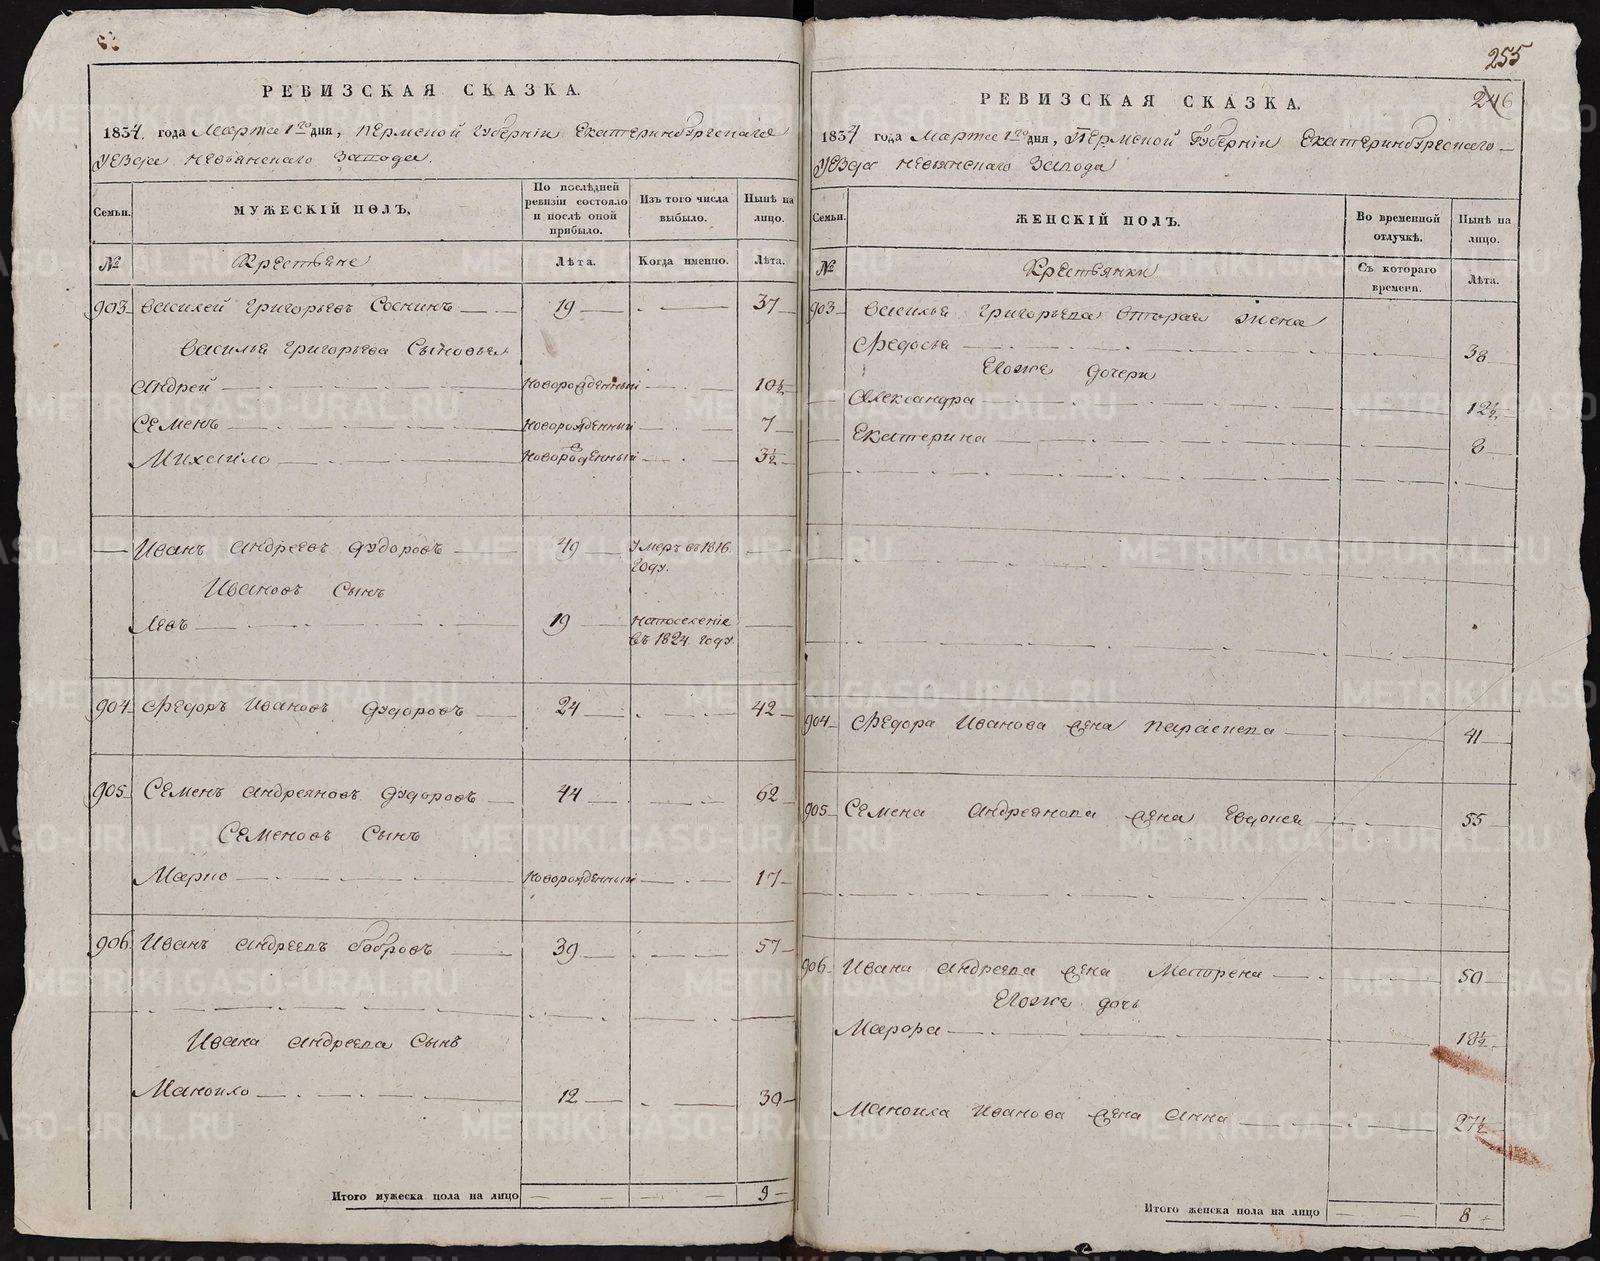 РЕВИЗСКАЯ СКАЗКА.
1834. года Марта 1го дня, Пермской Губерніи Екатеринбургскаго
Уезда Невьянскаго Завода.
Семьи.
МУЖЕСКІЙ ПОЛЪ,
По послѣдней ревизіи состояло и послѣ оной прибыло.
Изъ того числа выбыло.
Нынѣ на лицо.
№ Крестьяне Лѣта. Когда именно. Лѣта.
903 Василей Григорьевъ Соснинъ 19 37
Василья Григорьева Сыновья
Андрей Новорожденный 10½
Семенъ Новорожденный 7
Михайло Новорожденный 3½
Иванъ Андреевъ Фудоровъ 49 Умеръ въ 1816.
году.
Ивановъ Сынъ
Левъ 19 на поселеніе
въ 1824 году.
904 Федоръ Ивановъ Фудоровъ 24 42
905 Семенъ Андреяновъ Фудоровъ 44 62
Семеновъ Сынъ
Марко Новорожденный 17
906 Иванъ Андреевъ Бобровъ 39 57
Ивана Андреева Сынъ
Маноило 12 30
Итого мужеска пола на лицо 9
255
246
РЕВИЗСКАЯ СКАЗКА.
1834 года Марта 1го дня, Пермской Губерніи Екатеринбургскаго
Уезда Невьянскаго Завода
Семьи.
ЖЕНСКІЙ ПОЛЪ.
Во временной отлучкѣ.
Нынѣ на лицо.
№ Крестьянки Съ котораго времени. Лѣта.
903 Василья Григорьева вторая жена
Федосья 38
Егоже дочери
Александра 12½
Екатерина 8
904 Федора Иванова жена Парасковья 41
905 Семена Андреянова жена Евдокея 55
906 Ивана Андреева жена Матрена 50
Егоже дочь
Мавра 18½
Маноила Иванова жена Анна 27½
Итого женска пола на лицо 8
METRIKI.GASO-URAL.RU